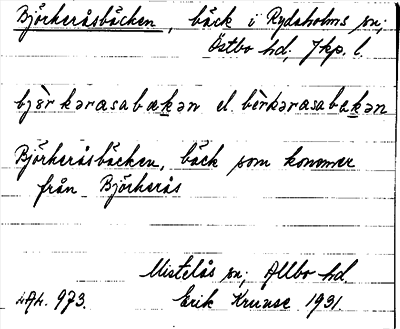 Björkeråsbäcken, bäck i Rydaholms sn;
Östbo hd, Jkp. l.
bjèrkərasabækən el. bèrkərasabækən
Björkeråsbäcken, bäck som kommer
från Björkerås
Mistelås sn; Allbo hd.
Erik Kruuse 1931.
973.